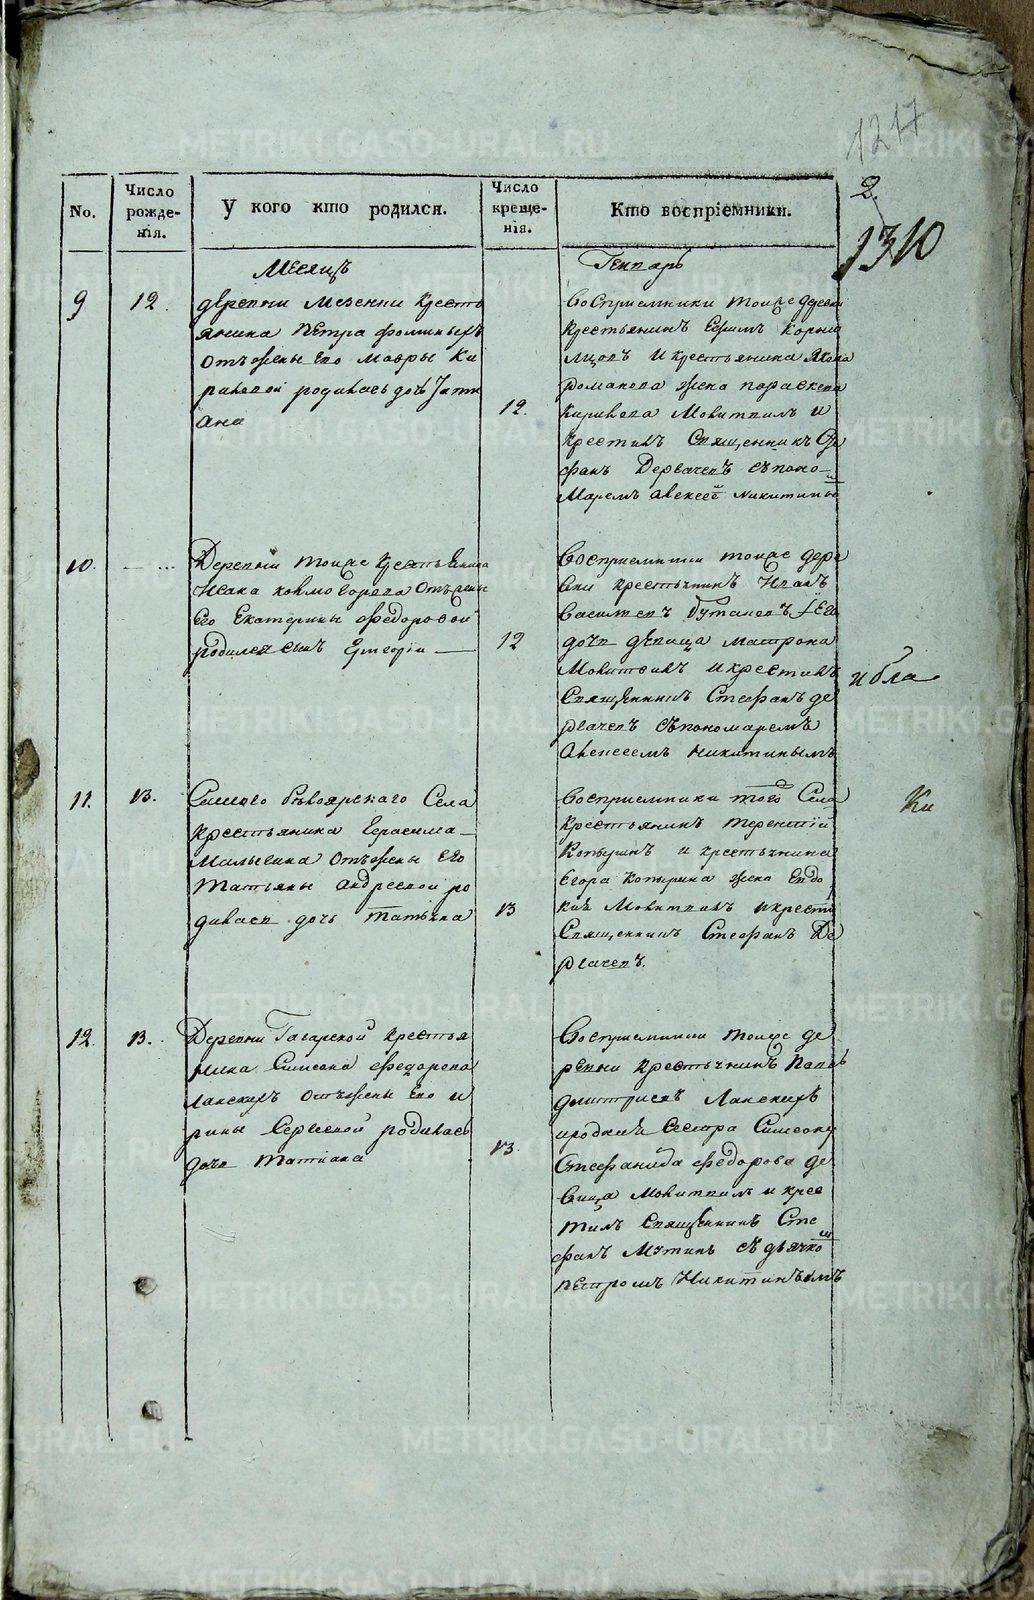 1217
2.
1310
No.
Число
рожде-
нія.
У кого кто родился.
Число
креще-
нія.
Кто воспріемники.
Месяцъ
Генварь
9
12.
деревни Мезенки крестъ
янина Петра Фоминыхъ
отъ жены его Мавры Ки
риловой родилась дочь Тати
ана
12.
Восприемники тойже деревни
крестьянинъ Ефимъ Корми
лцовъ и крестьянина Якова
романова жена параскева
Кирилова Молитвилъ и
крестилъ Священникъ Сте
фанъ Дерганевъ съ поно-
Маремъ алексеем Никитины
10.
Деревни тойже крестьянина
Исака колмогорова отъ жены
его Екатерины Федоровой
родился сынъ Григорiи
12
Восприемники тойже дере
вни крестьянинъ Иванъ
Василиевъ Его
дочь девица Матрона
Молитвилъ и крестилъ
Священникъ Стефанъ де
съ пономаремъ
Алексеемъ Никитинымъ
11.
13.
Самого Белоярскаго Села
крестьянина Герасима
Малыгина отъ жены его
Татьяны Андреевой ро
дилась дочь Татьяна
13
Восприемники того Села
крестьянинъ терентiй
и крестьянина
Егора жена Евдо
Молитвилъ и крести
Священникъ Стефанъ Де
12.
13.
Деревни Гагарской крестья
нина Симеона Федорова
Ланскихъ отъ жены его и
рины Сергеевой родилась
дочь Татiана
13.
Восприемники тойже де
ревни крестьянинъ Павелъ
дмитриевъ Ланскихъ
и родная Сестра Симеону
Стефанида Федорова де
вица Молитвилъ и крес
тилъ Священникъ Сте
фанъ съ дьячко
петромъ Никитинымъ
METRIKI.GASO-URAL.RU